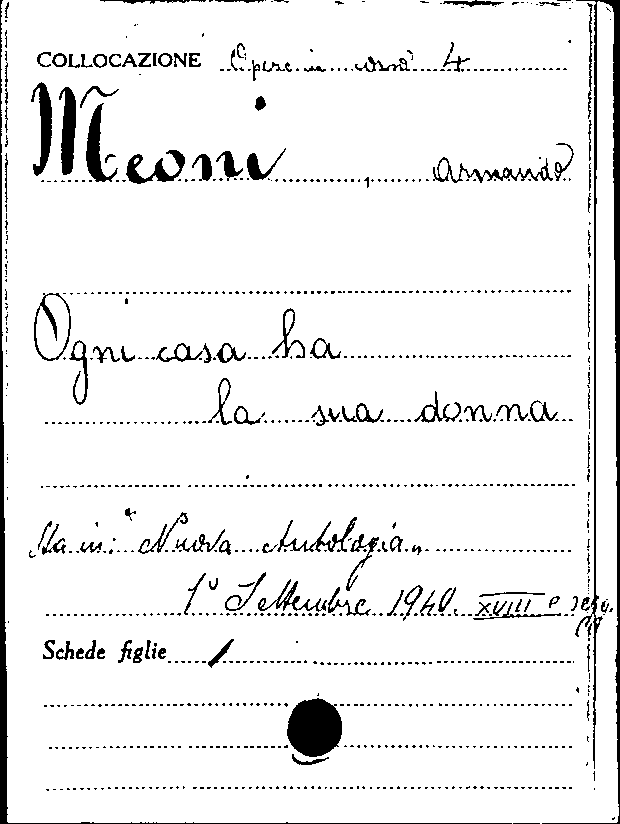 COLLOCAZIONE Opere in corso 4
Meoni, Armando
Ogni casa ha
la sua donna
Sta in: "Nuova Antologia"
1° Settembre 1940. XVIII e
Schede figlie /